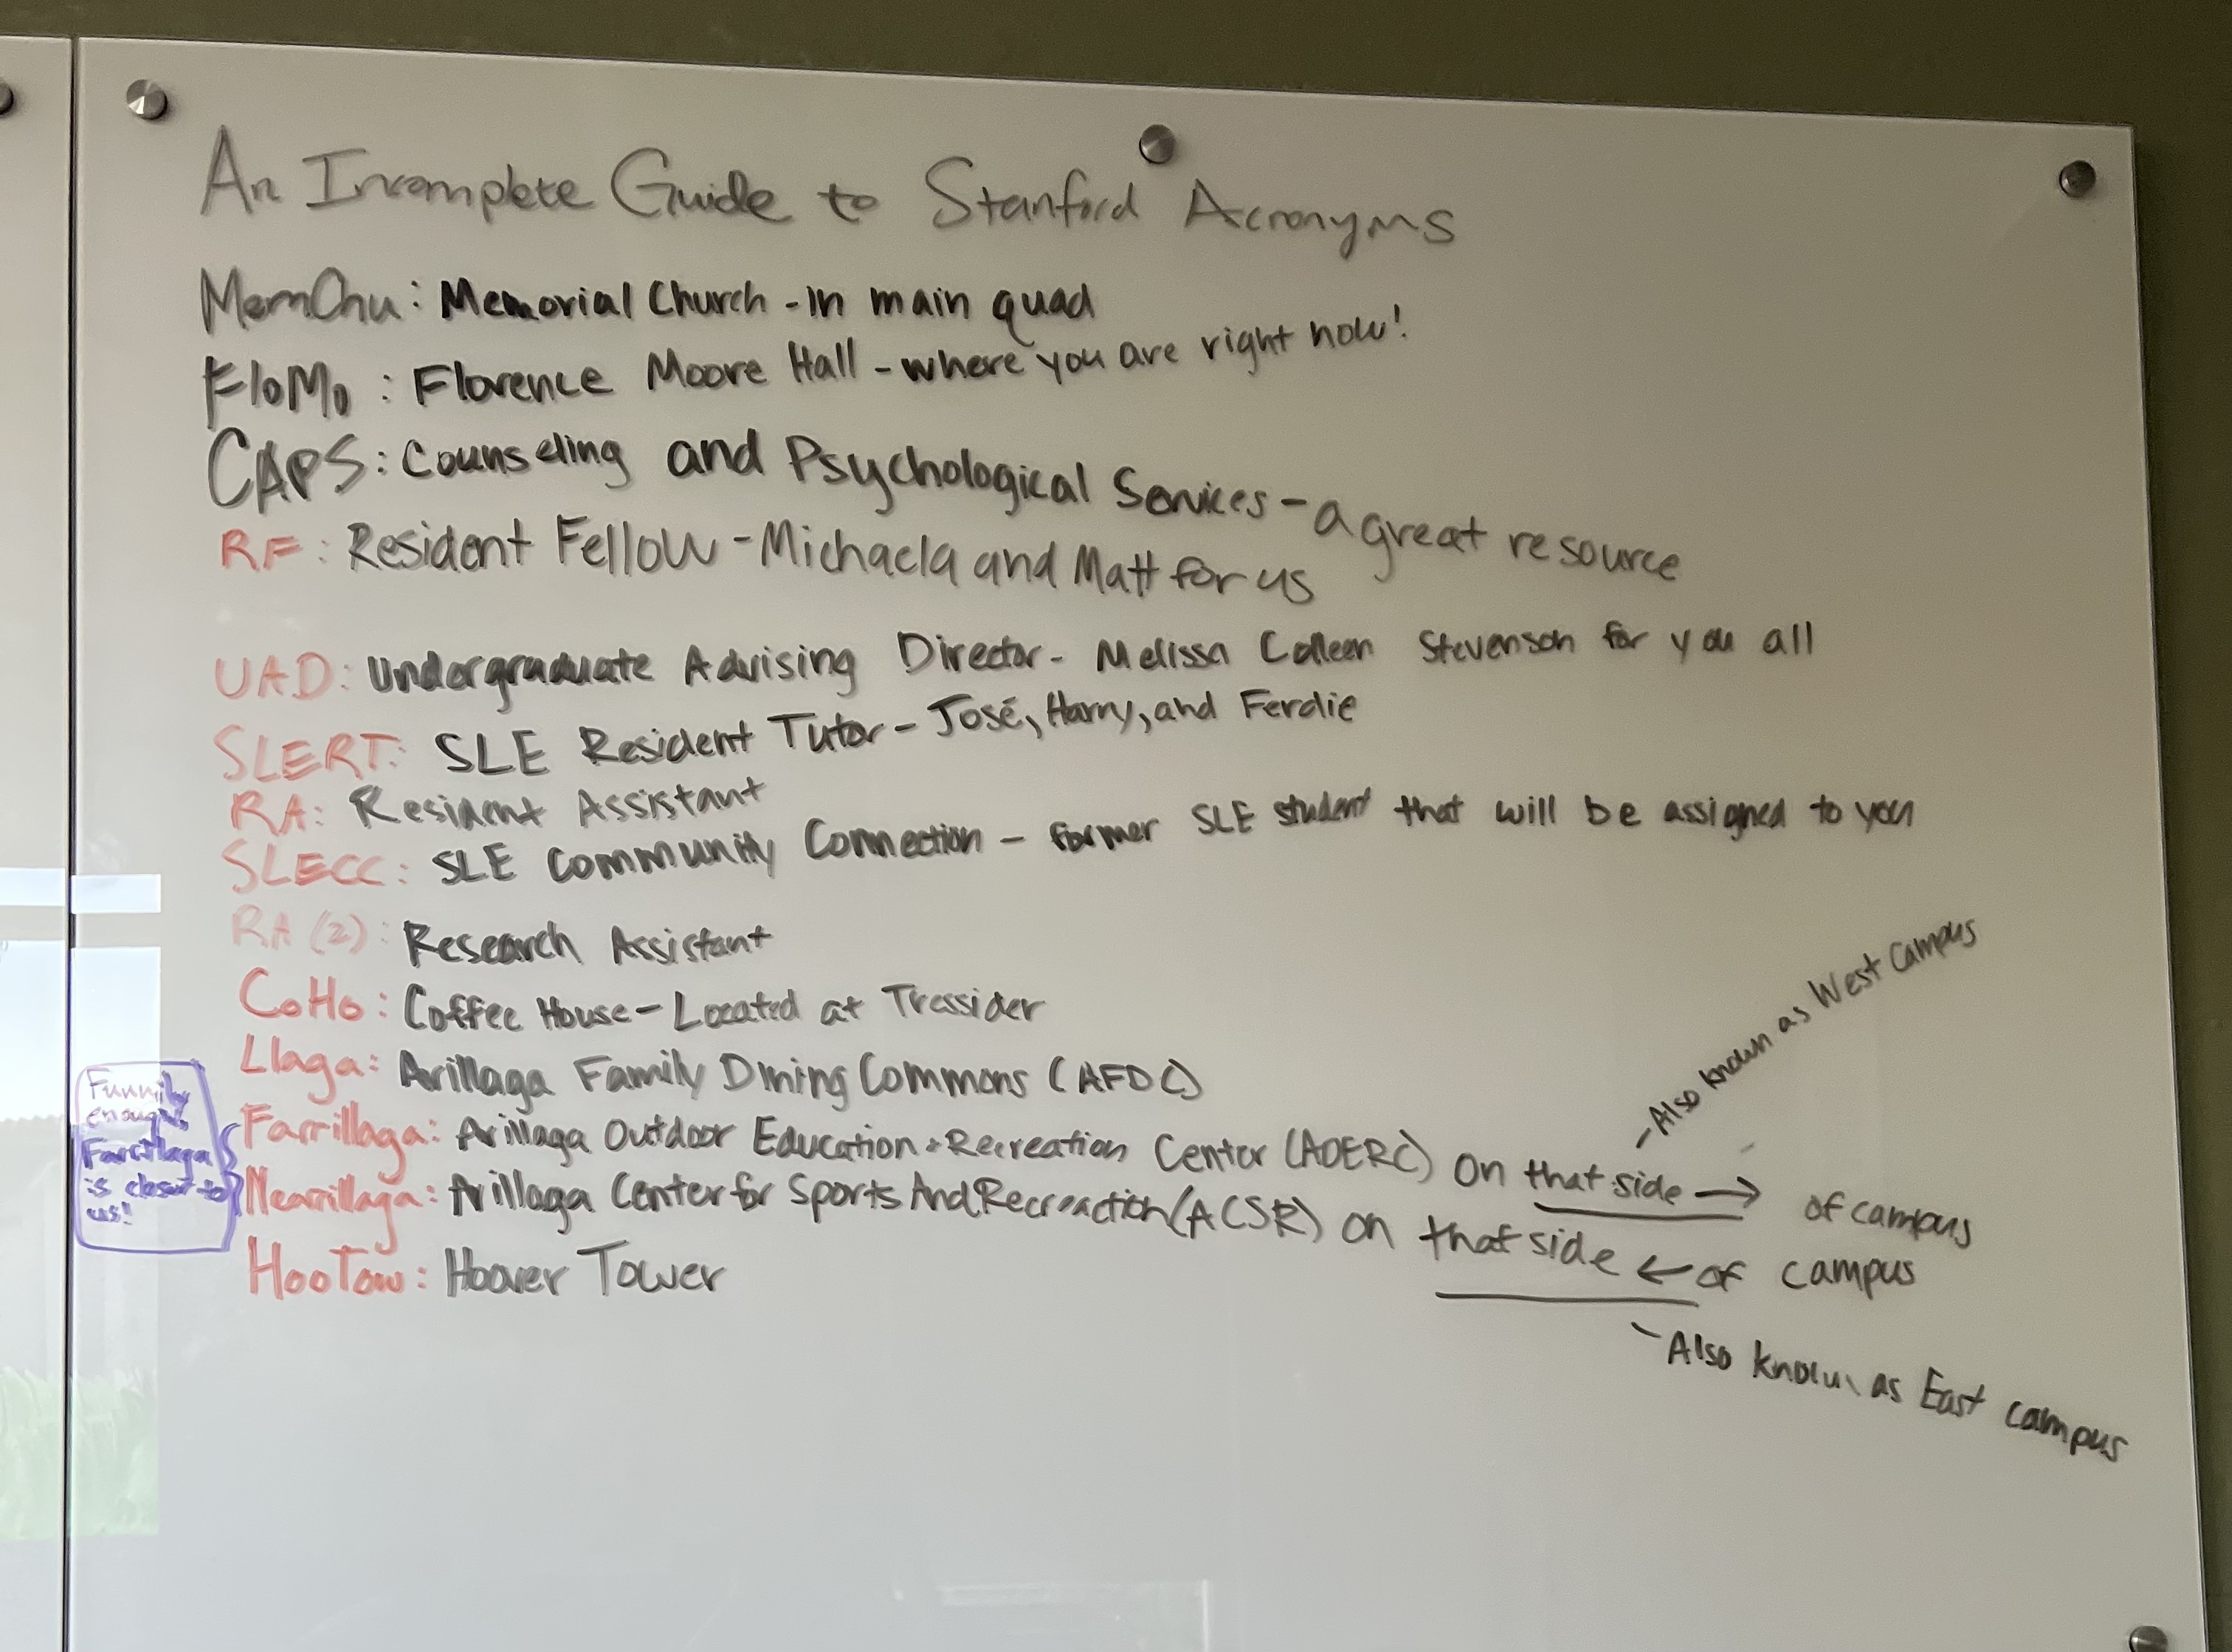 An Incomplete Guide to Stanford Acronyms
MemChu: Memorial Church - in main quad
FloMo: Florence Moore Hall - where you are right now!
CAPS: Counseling and Psychological Services - a great resource
RF: Resident Fellow - Michaela and Matt for us
UAD: Undergraduate Advising Director - Melissa Colleen Stevenson for you all
SLERT: SLE Resident Tutor - José, Harry, and Ferdie
RA: Resident Assistant
SLECC: SLE Community Connection - former SLE student that will be assigned to you
RA (2): Research Assistant
CoHo: Coffee House - Located at Tressider
Llaga: Arillaga Family Dining Commons (AFDC)
Farrillaga: Arillaga Outdoor Education + Recreation Center (AOERC) on that side → of campus
- Also known as West Campus
Nearillaga: Arillaga Center for Sports And Recreaction (ACSR) on that side ← of campus
- Also known as East campus
Funnily
enough,
Farrillaga
is closer to
us!
HooTow: Hoover Tower